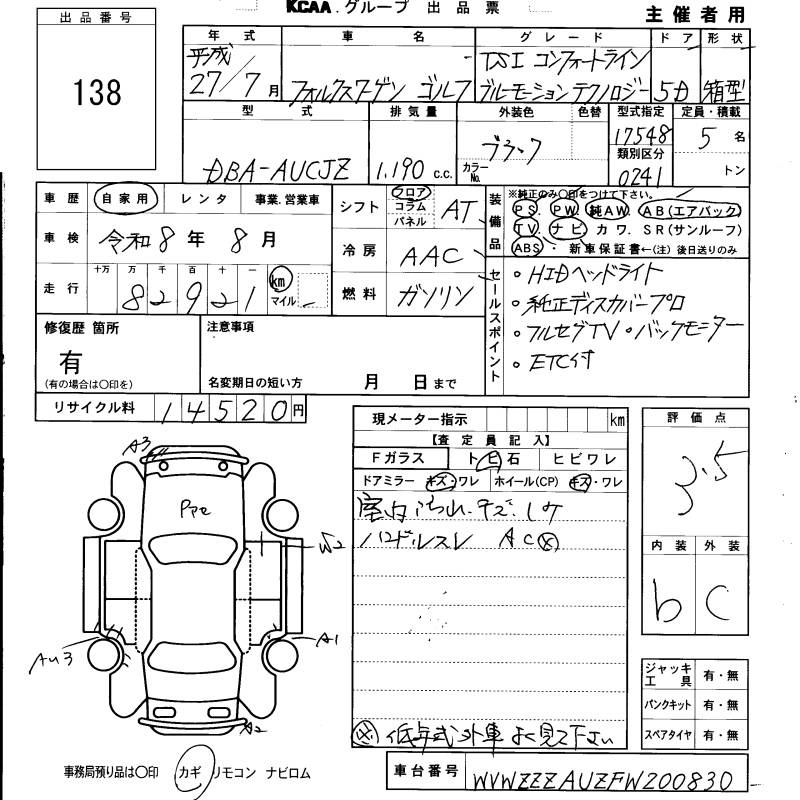 KCAA.グループ 出品票
主催者用
出品番号
138
年式 車名 グレード ドア 形状
平成 27/7月
フォルクスワーゲン ゴルフ
TSI コンフォートライン
ブルーモーションテクノロジー
5D 箱型
型式 排気量 外装色 色替 型式指定 定員・積載
DBA-AUCJZ 1,190 c.c. ブラック
カラーNo.
17548
類別区分
0241
5 名
トン
車歴 自家用 レンタ 事業.営業車
車検 令和8年 8月
走行 十万 万 千 百 十 一
82921 km マイル
シフト フロア コラム パネル AT
冷房 AAC
燃料 ガソリン
装備品
※純正のみ○印をつけて下さい。
PS. PW. 純AW. AB(エアバック)
TV. ナビ カワ. SR(サンルーフ)
ABS. 新車保証書←(注)後日送りのみ
セールスポイント
・HIDヘッドライト
・純正ディスカバープロ
・フルセグTV・バックモニター
・ETC付
修復歴 箇所
有
(有の場合は○印を)
注意事項
名変期日の短い方 月 日まで
リサイクル料 14520円
現メーター指示 km
【査定員記入】
Fガラス トビ石 ヒビワレ
ドアミラー キズ・ワレ ホイール(CP) キズ・ワレ
室内汚れ.キズ.シケ
ハンドルスレ AC
低年式外車よく見て下さい
評価点
3.5
内装 外装
b C
ジャッキ工具 有・無
パンクキット 有・無
スペアタイヤ 有・無
A3
W2
A1
A2
事務局預り品は○印 カギ リモコン ナビロム
車台番号 WVWZZZAUZFW200830